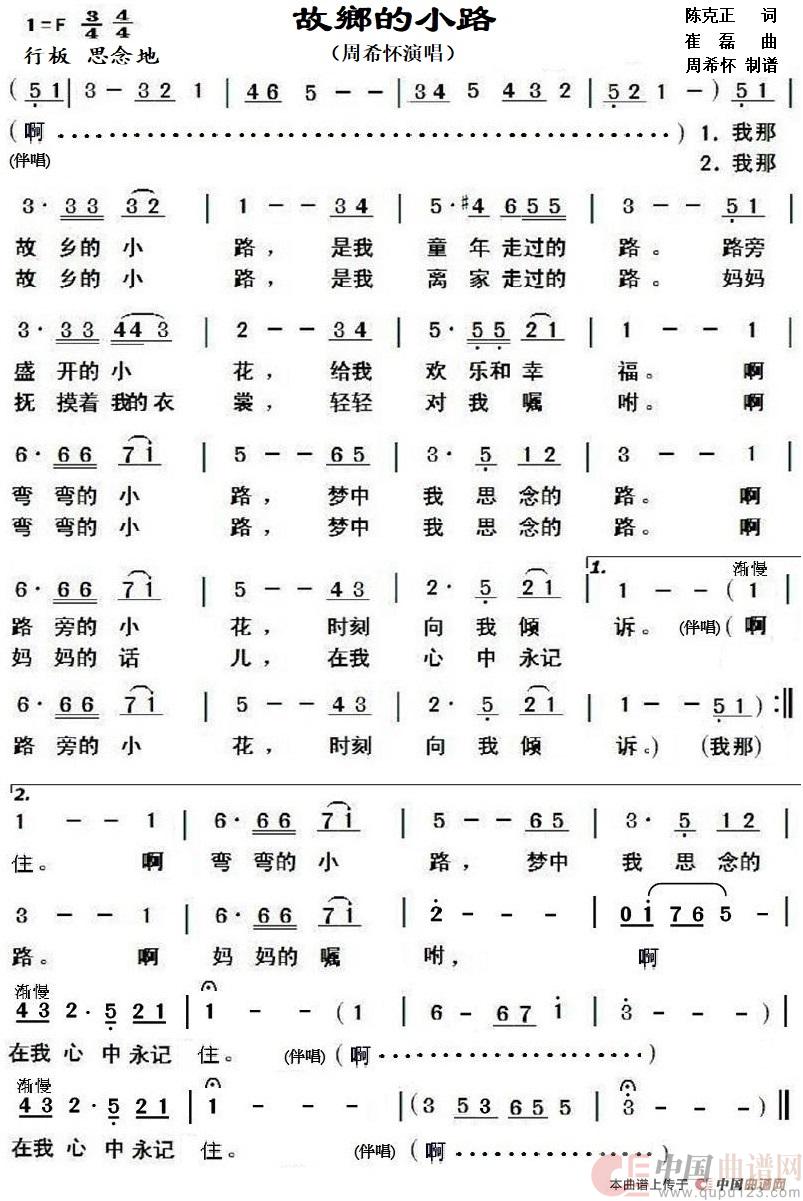 故鄉的小路
1=F 3/4 4/4
行板 思念地
（周希怀演唱）
陈克正 词
崔磊 曲
周希怀 制谱
( 5 1 | 3 - 3 2 1 | 4 6 5 - - | 3 4 5 4 3 2 | 5 2 1 - ) 5 1 |
(啊 ) 1. 我那
(伴唱) 2. 我那
3· 3 3 3 2 | 1 - - 3 4 | 5· #4 6 5 5 | 3 - - 5 1 |
故 乡的 小 路， 是我 童 年 走过的 路。 路旁
故 乡的 小 路， 是我 离 家 走过的 路。 妈妈
3· 3 3 4 4 3 | 2 - - 3 4 | 5· 5 5 2 1 | 1 - - 1 |
盛 开的 小 花， 给我 欢 乐和 幸 福。 啊
抚 摸着 我的 衣 裳， 轻轻 对 我 嘱 咐。 啊
6· 6 6 7 1 | 5 - - 6 5 | 3· 5 1 2 | 3 - - 1 |
弯 弯的 小 路， 梦中 我 思 念的 路。 啊
弯 弯的 小 路， 梦中 我 思 念的 路。 啊
1. 渐慢
6· 6 6 7 1 | 5 - - 4 3 | 2· 5 2 1 | 1 - - ( 1 |
路 旁的 小 花， 时刻 向 我 倾 诉。 (伴唱) ( 啊
妈 妈的 话 儿， 在我 心 中 永记
6· 6 6 7 1 | 5 - - 4 3 | 2· 5 2 1 | 1 - - 5 1 ) :||
路 旁的 小 花， 时刻 向 我 倾 诉。) (我那
2.
1 - - 1 | 6· 6 6 7 1 | 5 - - 6 5 | 3· 5 1 2 |
住。 啊 弯 弯的 小 路， 梦中 我 思 念的
3 - - 1 | 6· 6 6 7 1 | 2 - - | 0 1 7 6 5 - |
路。 啊 妈 妈的 嘱 咐， 啊
渐慢
4 3 2· 5 2 1 | 1 - - (1 | 6 - 6 7 1 | 3 - - ) |
在我 心 中 永记 住。 (伴唱) ( 啊 )
渐慢
4 3 2· 5 2 1 | 1 - - - | (3 5 3 6 5 5 | 3 - - - ) ||
在我 心 中 永记 住。 (伴唱) (啊 )
中国曲谱网
本曲谱上传于 中国曲谱网
www.qupu123.com